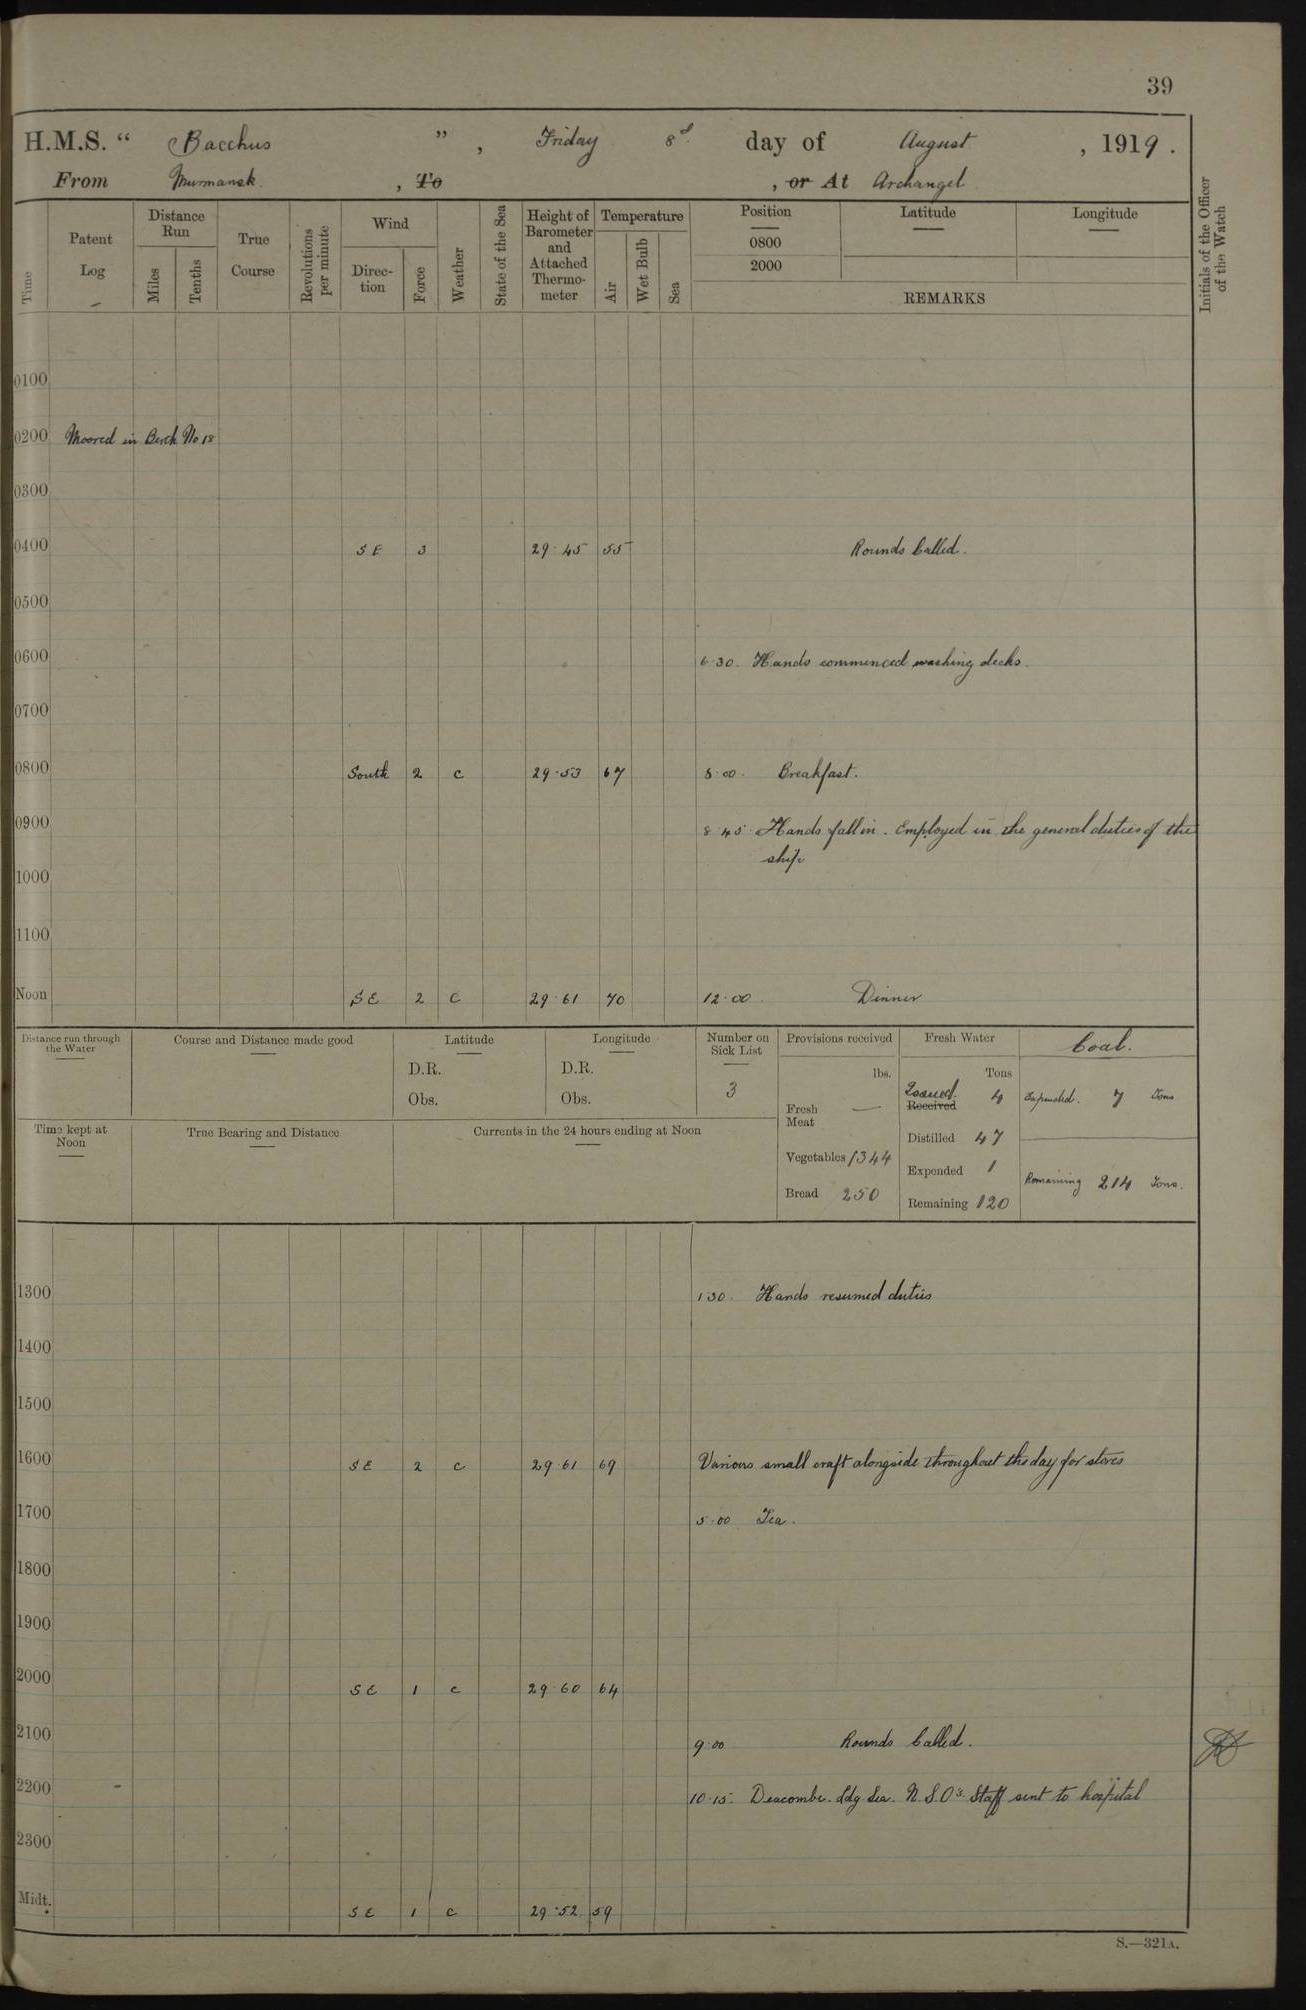 39
H.M.S. “ Bacchus ” , Friday 8th day of August , 1919.
From Murmansk , To , or At Archangel
Time
Patent Log
Distance Run
Miles
Tenths
True Course
Revolutions per minute
Wind
Direc-tion
Force
Weather
State of the Sea
Height of Barometer and Attached Thermo-meter
Temperature
Air
Wet Bulb
Sea
Position
0800
2000
Latitude
Longitude
REMARKS
Initials of the Officer of the Watch
0100
0200 Moored in Berth No 18
0300
0400 SE 3 29.45 55 Rounds Called.
0500
0600 6.30. Hands commenced washing decks.
0700
0800 South 2 c 29.53 67 8.00. Breakfast.
0900 8.45. Hands fall in. Employed in the general duties of the
ship
1000
1100
Noon SE 2 c 29.61 70 12.00. Dinner
Distance run through the Water
Course and Distance made good
Latitude
D.R.
Obs.
Longitude
D.R.
Obs.
Number on Sick List
3
Provisions received
lbs.
Fresh Meat —
Vegetables 1344
Bread 250
Fresh Water
Tons
Issued. Received 4
Distilled 47
Expended 1
Remaining 120
Coal.
Expended. 7 Tons
Remaining 214 Tons.
Time kept at Noon
True Bearing and Distance
Currents in the 24 hours ending at Noon
1300 1.30. Hands resumed duties
1400
1500
1600 SE 2 c 29.61 69 Various small craft alongside throughout the day for stores
1700 5.00 Tea.
1800
1900
2000 SE 1 c 29.60 64
2100 9.00 Rounds Called.
2200 10.15. Deacombe. Ldg Sea. N.S.O's Staff sent to hospital
2300
Midt. SE 1 c 29.52 59
S.—321A.